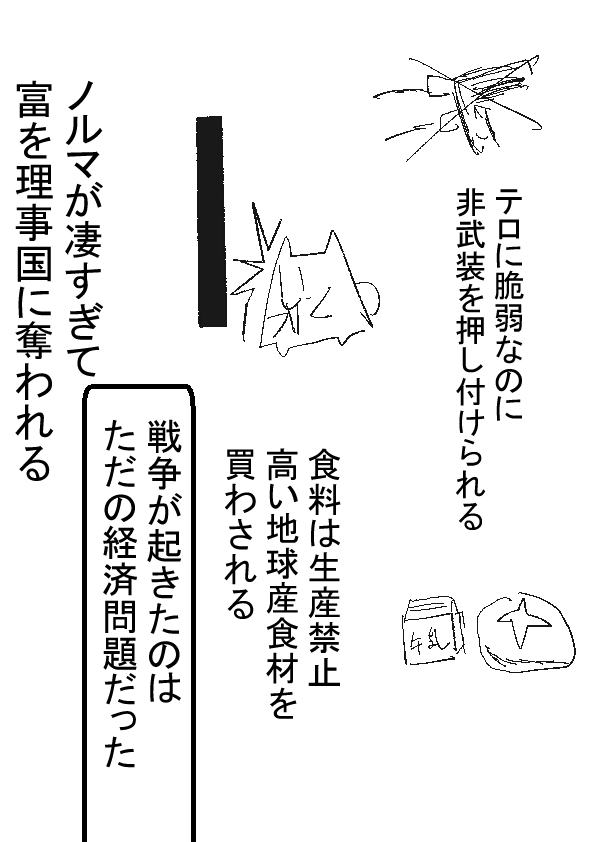 テロに脆弱なのに
非武装を押し付けられる
食料は生産禁止
高い地球産食材を
買わされる
牛乳
戦争が起きたのは
ただの経済問題だった
ノルマが凄すぎて
富を理事国に奪われる